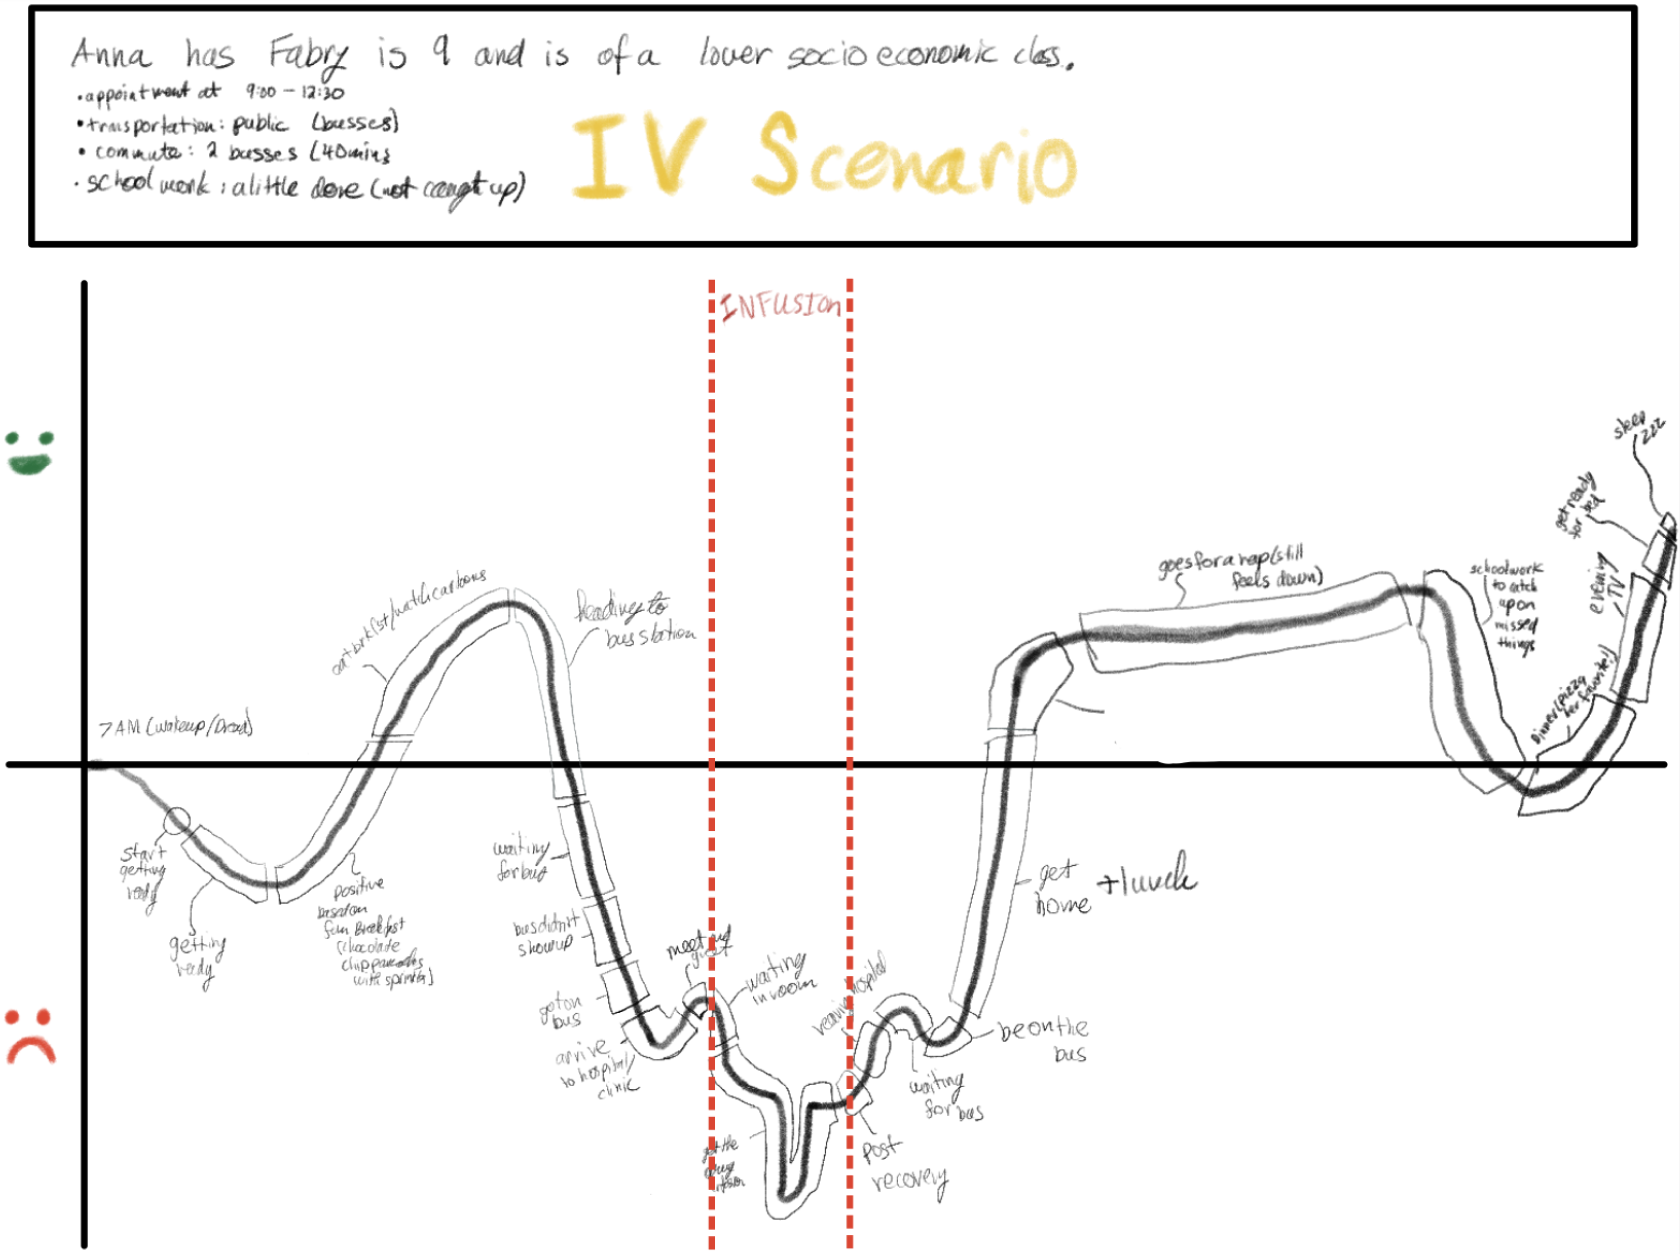 Anna has Fabry is 9 and is of a lower socio economic class.
• appointment at 9:00 - 12:30
• transportation: public (busses)
• commute: 2 busses (40mins
• school work: a little done (not caught up)
IV Scenario
INFUSION
7 AM (wakeup/Dread)
start
getting
ready
getting
ready
positive
based on
fun Breakfast
(chocolate
chip pancakes
with sprinkles)
eat brkfst/watch cartoons
heading to
bus station
waiting
for bus
bus didn't
show up
got on
bus
arrive
to hospital/
clinic
meet
waiting
in room
get the
drug
post
recovery
leaving hospital
waiting
for bus
be on the
bus
get
home + lunch
goes for a nap (still
feels down)
schoolwork
to catch
up on
missed
things
Dinner (pizza
her favorite!)
evening
TV
get ready
for bed
sleep
zzz